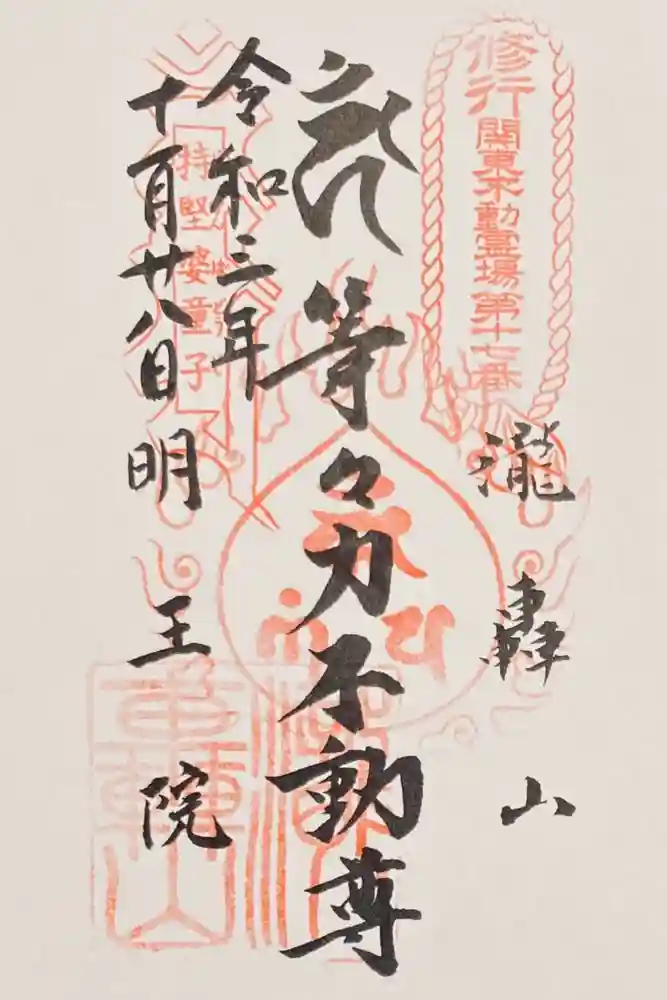 修行
関東不動霊場第十七番
瀧轟山
等々力不動尊
令和三年
十月廿八日
明王院
持堅婆童子